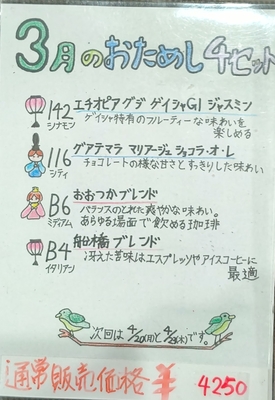 3月のおためし4セット
142 エチオピア グジ ゲイシャG1 ジャスミン
シナモン ゲイシャ特有のフルーティーな味わいを
楽しめる
116 グアテマラ マリアージュ ショコラ・オ・レ
シティ チョコレートの様な甘さとすっきりした味わい
B6 おおつかブレンド
ミディアム バランスのとれた爽やかな味わい。
あらゆる場面で飲める珈琲
B4 船橋ブレンド
イタリアン 冴えた苦味はエスプレッソやアイスコーヒーに
最適
次回は 4/20(月)と4/29(水)です。
通常販売価格 ¥4250